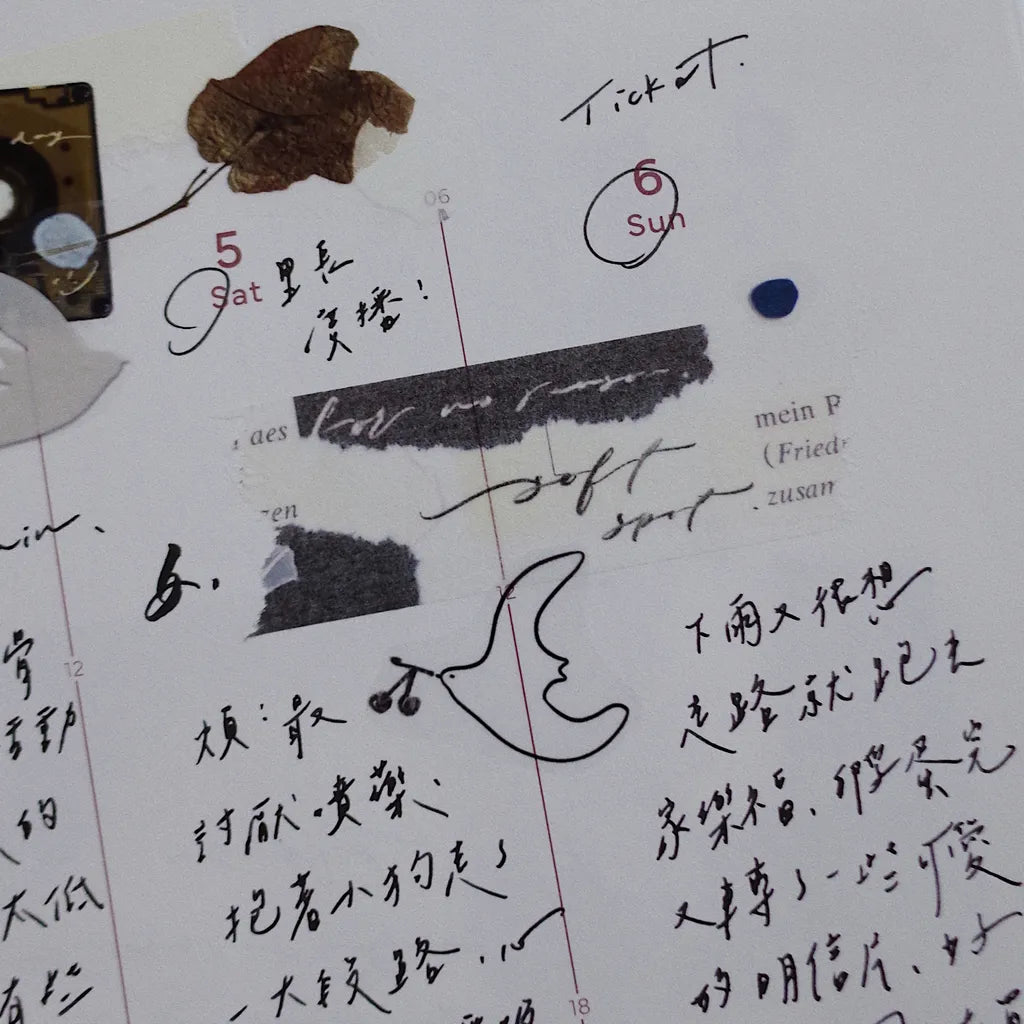 Ticket.
06
5
Sat
里長
廣播！
6
Sun
for no reason.
aes
mein P
(Fried
soft
spot
.zusam
en
12
煩：最
討厭噴藥、
抱著小狗走了
一大段路.
18
下雨又很想
走路就跑去
家樂福、
完
又轉了一些可愛
的明信片、好
骨
動
的
太低
有些